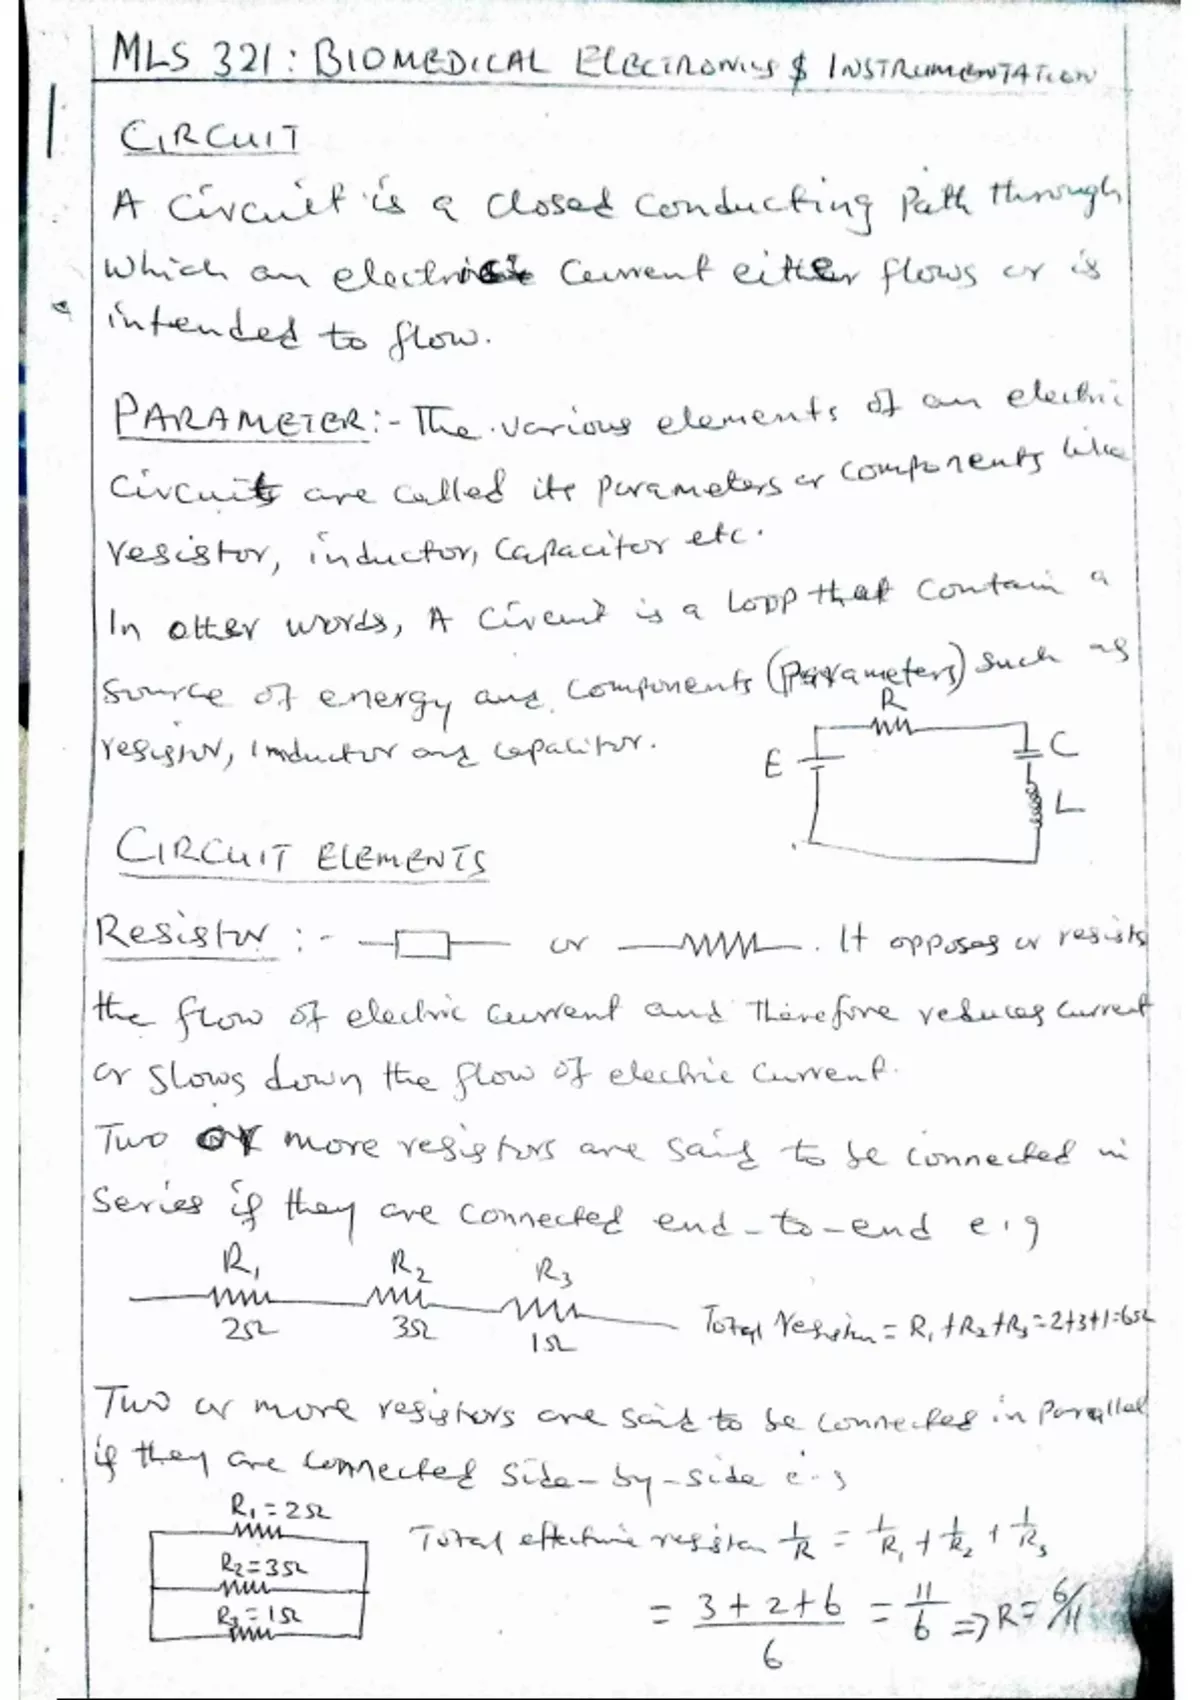 MLS 321: BIOMEDICAL ELECTRONICS & INSTRUMENTATION
1
CIRCUIT
A circuit is a closed conducting path through
which an electric current either flows or is
intended to flow.
PARAMETER:- The various elements of an electric
circuits are called its parameters or components like
resistor, inductor, capacitor etc.
In other words, A circuit is a loop that contain a
source of energy and components (parameters) such as
resistor, inductor and capacitor.
R
E
C
L
CIRCUIT ELEMENTS
Resistor :- or . It opposes or resists
the flow of electric current and therefore reduces current
or slows down the flow of electric current.
Two or more resistors are said to be connected in
series if they are connected end-to-end e.g
R₁ R₂ R₃
2Ω 3Ω 1Ω
Total = R₁+R₂+R₃=2+3+1=6Ω
Two or more resistors are said to be connected in parallel
if they are connected side-by-side e.g
R₁=2Ω
R₂=3Ω
R₃=1Ω
Total effective 1/R = 1/R₁ + 1/R₂ + 1/R₃
= 3+2+6/6 = 11/6 => R= 6/11